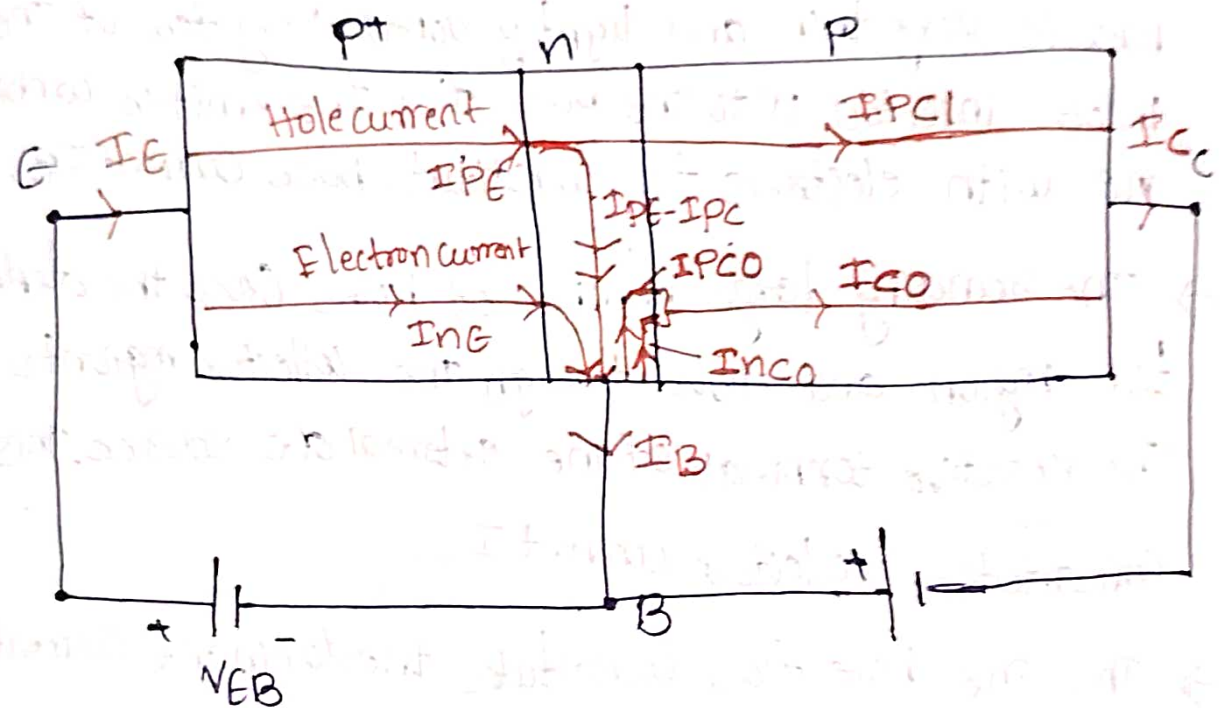 P+ n P
Hole current
IPC1
IE
IPE
ICC
E
IPE-IPC
Electron current
IPCO
ICO
InE
InCO
IB
+ -
B
+
VEB